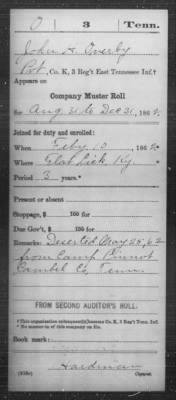 O | 3 | Tenn.
John A. Overby
Pvt., Co. K, 3 Reg't East Tennessee Inf.†
Appears on
Company Muster Roll
for Aug 31 to Dec 31, 1862.
Joined for duty and enrolled:
When Feby 10, 1862.
Where Flat Lick Ky
Period 3 years.*
Present or absent
Stoppage, $ 100 for
Due Gov't, $ 100 for
Remarks: Deserted May 25, 62
from Camp
Cambel Co, Tenn.
FROM SECOND AUDITOR'S ROLL.
†This organization subsequently became Co. K, 3 Reg't Tenn. Inf.
Book mark:
Hardman
(358c) Copyist.